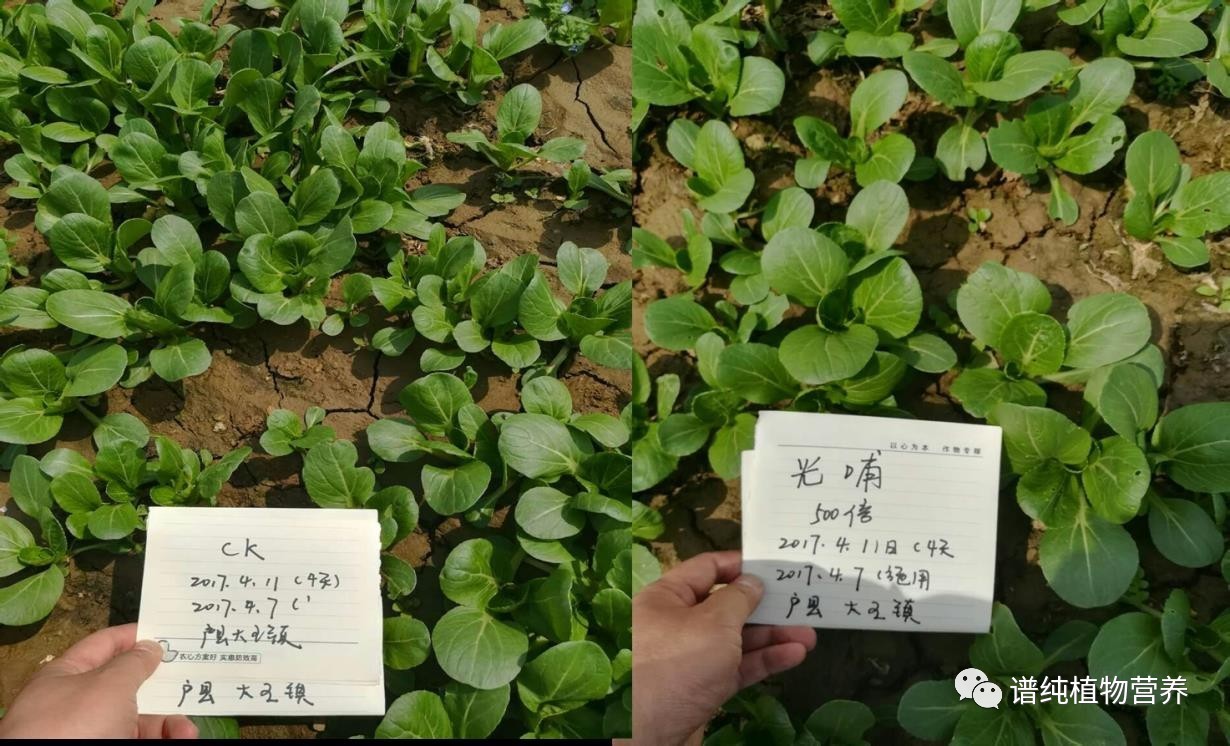 CK
2017.4.11（4天）
2017.4.7（
户县大王镇
农心方案好 实惠防效高
户县 大王镇
以心为本 作物专程
光哺
500倍
2017.4.11日（4天
2017.4.7（施用
户县 大王镇
谱纯植物营养